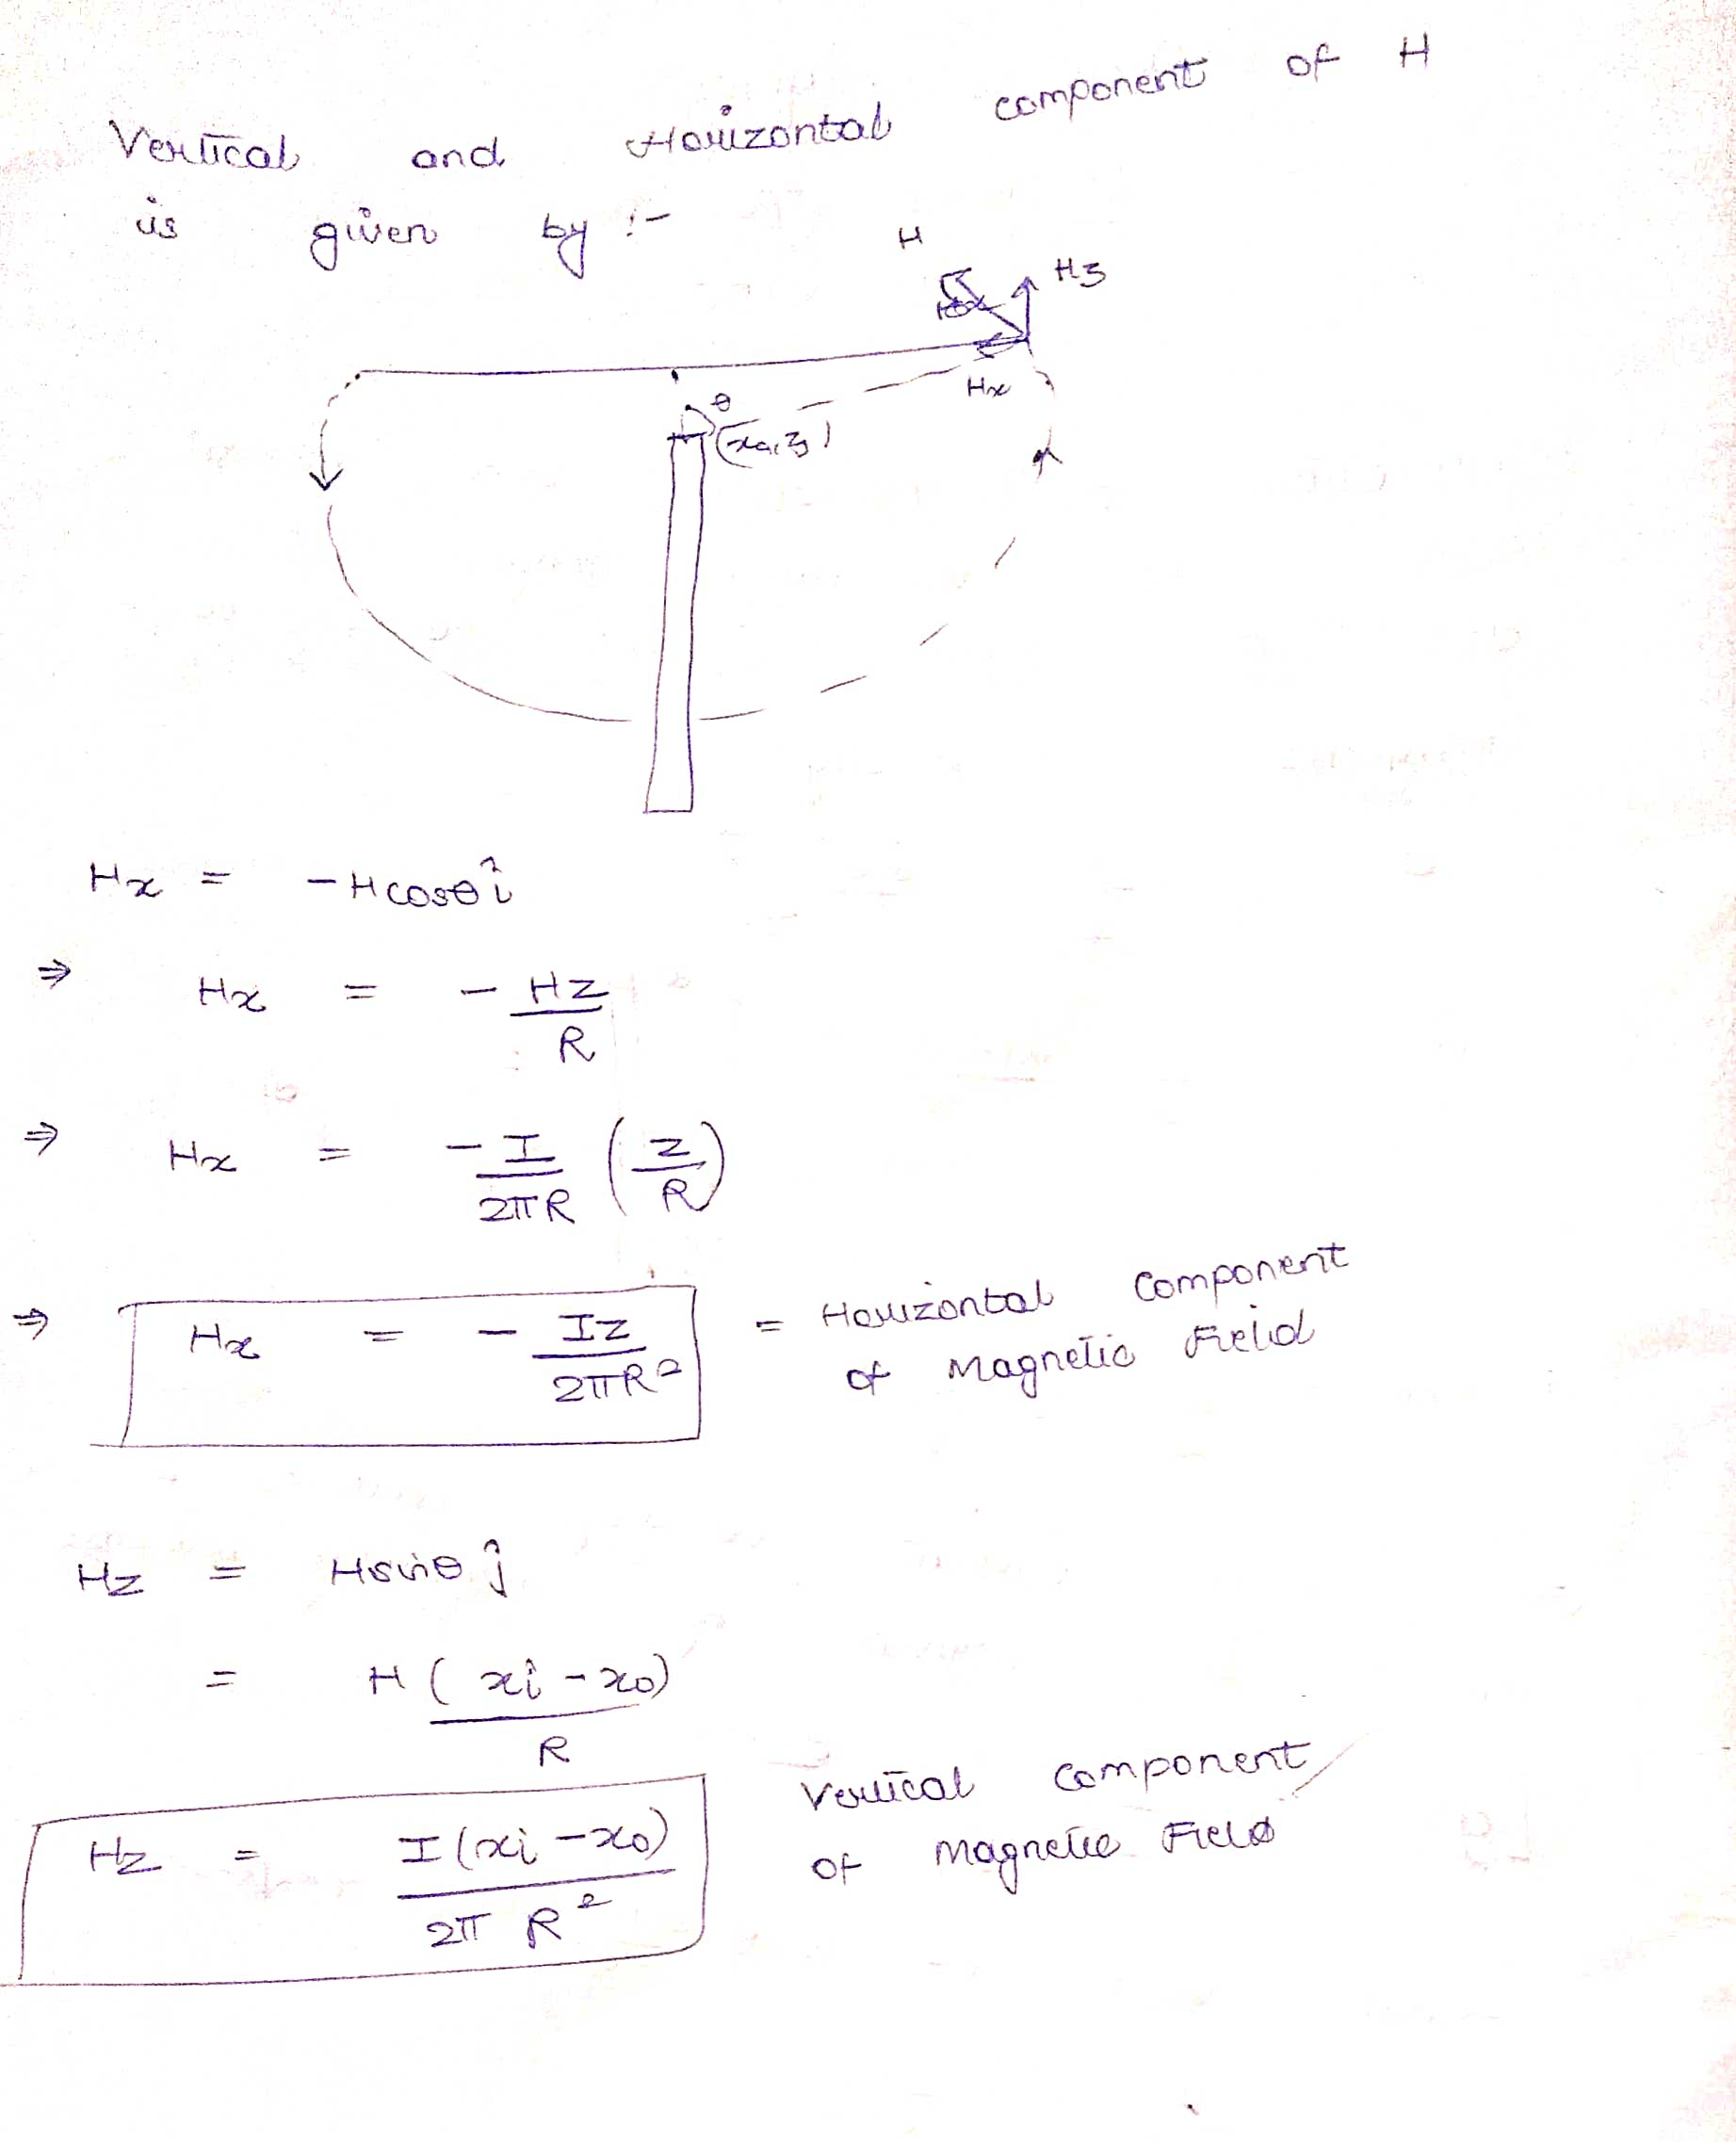 Vertical and Horizontal component of H
is given by :-
H
Hz
Hx
θ
(x₀,z)
Hx = -Hcosθ î
⇒ Hx = - HZ/R
⇒ Hx = - I/2πR (Z/R)
⇒ Hx = - IZ/2πR² = Horizontal Component
of Magnetic Field
Hz = Hsinθ ĵ
= H (xi - x₀)/R
Hz = I(xi - x₀)/2π R² Vertical Component
of Magnetic Field